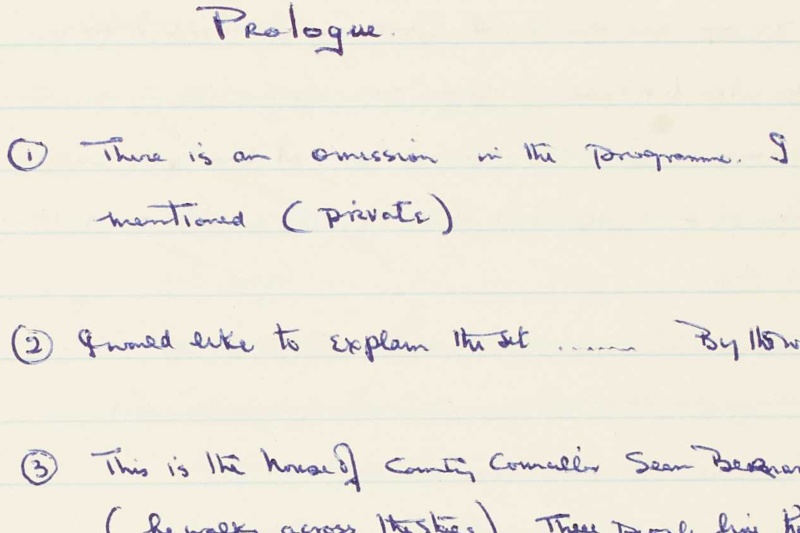 Prologue.
① There is an omission in the programme. I
mentioned (private)
② I would like to explain the set ....... By the w
③ This is the house of County Councillor Sean
(he walks across the stage) These people live